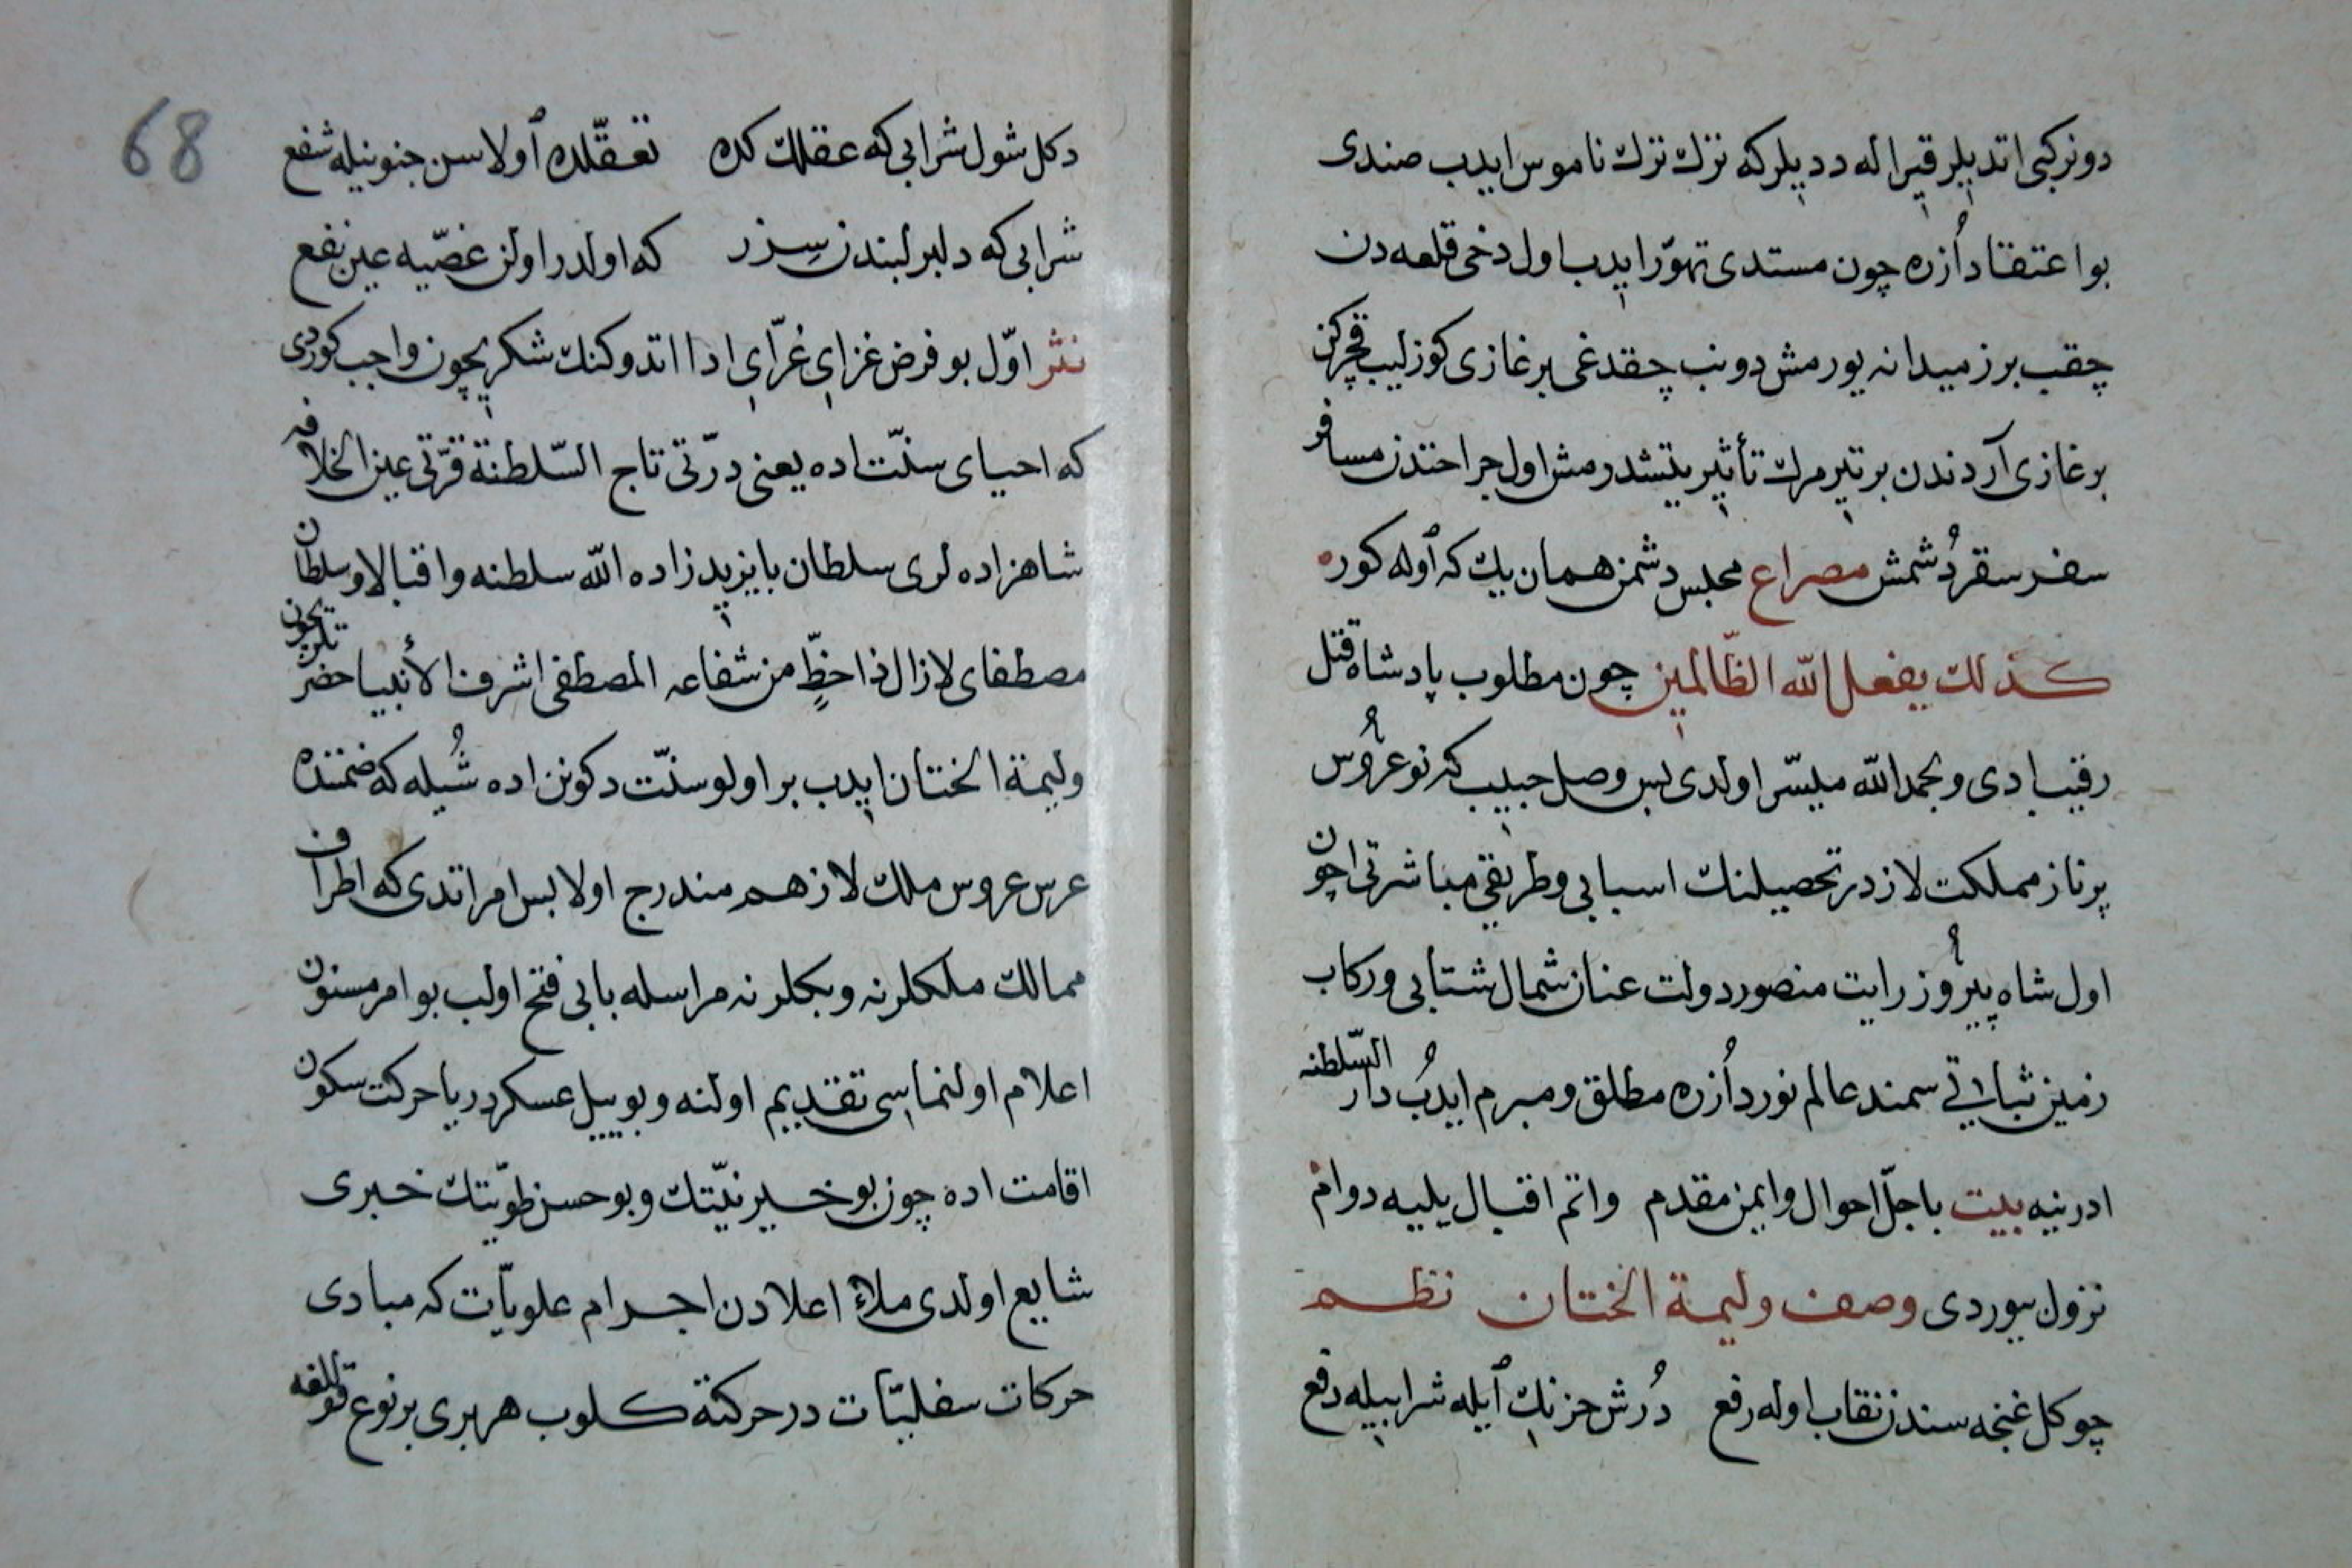 دونركبى اتديلر قيراله دديلركه نزك نزك ناموس ايدب صندى
بو اعتقاد اُزره چون مستدى تهوّر ايدب اول دخى قلعه دن
چقب برز ميدانه يورمش دونب چقدغى بر غازى كوزليب قچركن
بر غازى آردندن بر تير مرك تأثير يتشدرمش اول جراحتدن مسافر
سفر سقر دُشمش مصراع مجلس دشمن همان يك كه اوله كوره
كذلك يفعل الله الظّالمين چون مطلوب پادشاه قتل
رقيب ادى و بحمد الله ميسّر اولدى بس وصل حبيب كه نو عرُوس
پرناز مملكت لازدر تحصيلنك اسبابى و طريقى مباشرتى اچون
اول شاه پيرُوز رايت منصور دولت عنان شمال شتابى و ركاب
زمين ثباتى سمند عالم نورد اُزره مطلق و مبرم ايدُب دار السّلطنه
ادرنيه بيت باجلّ احوال و ايمن مقدم واتم اقبال يليه دوام
نزول بيوردى وصف وليمة الختان نظم
چو كل غنچه سندن نقاب اوله رفع دُرش حزنك ايله شرابيله دفع
68
دكل شول شرابى كه عقلك كده تعقّلده اولاسن جنونيله شفع
شرابى كه دلبر لبندن سزر كه اولدر اولن غصّيه عين نفع
نثر اوّل بو فرض غزاى غرّاى ادا اتدوكنك شكريچون واجب كوردى
كه احياى سنّت اده يعنى درّتى تاج السّلطنة قرّتى عين الخلافه
شاهزاده لرى سلطان بايزيد زاده الله سلطنه و اقبالا و سلطان
مصطفاى لازال ذا حظٍّ من شفاعه المصطفى اشرف الأنبيا حضرتلريچون
وليمة الختان ايدب بر اولو سنّت دكونن اده شُيله كه ضمننده
عرس عروس ملك لاز هم مندرج اولا بس امر اتدى كه اطراف
ممالك ملكلرنه و بكلرنه مراسله بابى فتح اولب بو امر مسنون
اعلام اولنماسى تقديم اولنه و بو ييل عسكر دريا حركت سكون
اقامت اده چون بو خير نيّتك و بو حسن طويّتك خبرى
شايع اولدى ملاء اعلادن اجرام علويّات كه مبادى
حركات سفليّات در حركتة كلوب هر برى بر نوع